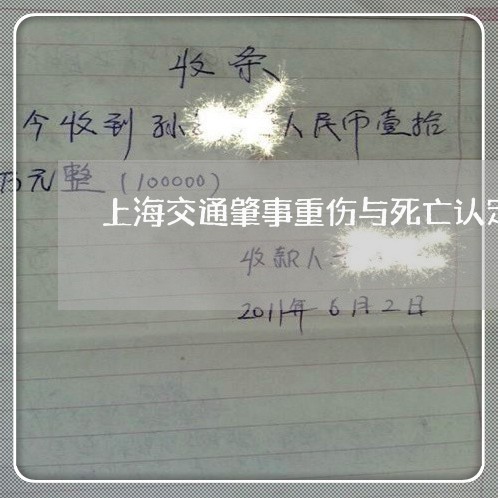 收条
今收到孙 人民币壹拾
万元整(100000)
上海交通肇事重伤与死亡认定
收款人
2011年6月2日